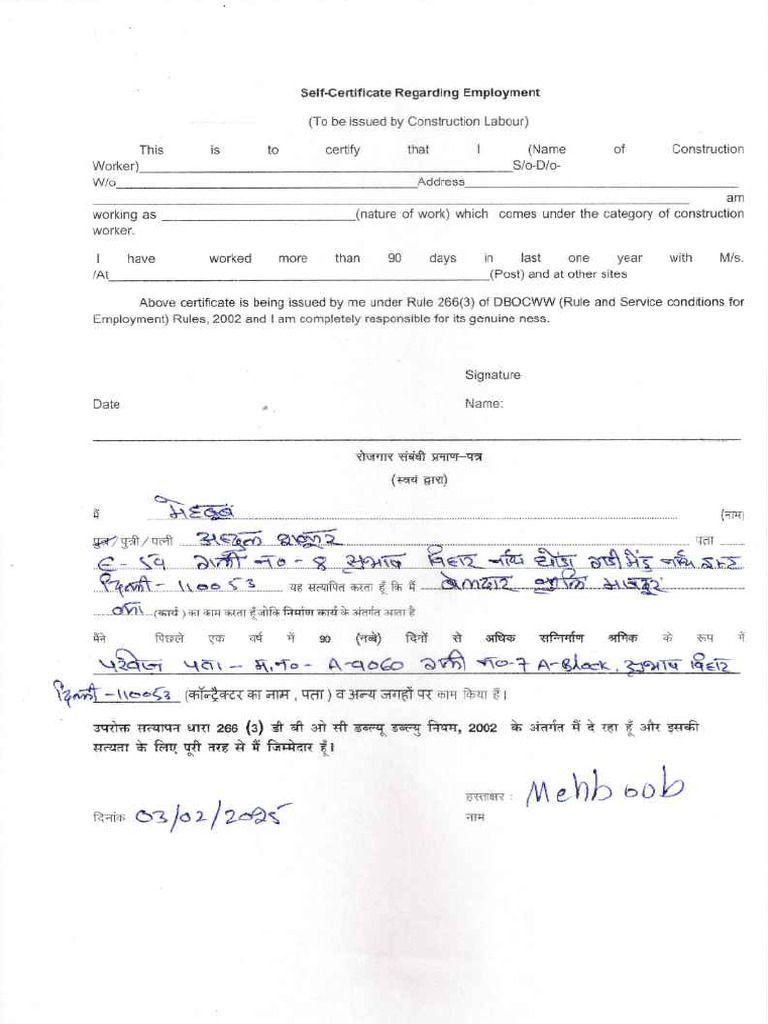 Self-Certificate Regarding Employment
(To be issued by Construction Labour)
This is to certify that I (Name of Construction
Worker)____________________S/o-D/o-
W/o____________________Address____________________
____________________ am
working as ____________________(nature of work) which comes under the category of construction
worker.
I have worked more than 90 days in last one year with M/s.
/At____________________(Post) and at other sites
Above certificate is being issued by me under Rule 266(3) of DBOCWW (Rule and Service conditions for
Employment) Rules, 2002 and I am completely responsible for its genuine ness.
Signature
Date Name:
रोजगार संबंधी प्रमाण-पत्र
(स्वयं द्वारा)
मैं मेहबूब (नाम)
पुत्र/पुत्री/पत्नी अब्दुल शकूर पता
E-59 गली नं०-8 सुभाष विहार नार्थ घोंडा गढी मेंडू नार्थ ईस्ट
दिल्ली-110053 यह सत्यापित करता हूँ कि मैं बेलदार मजदूर
का (कार्य) का काम करता हूँ जोकि निर्माण कार्य के अंतर्गत आता है
मैंने पिछले एक वर्ष में 90 (नब्बे) दिनों से अधिक सन्निर्माण श्रमिक के रूप में
परवेज पता- म.न०- A-1060 गली न०-7 A-Block, सुभाष विहार
दिल्ली-110053 (कॉन्ट्रैक्टर का नाम, पता) व अन्य जगहों पर काम किया है।
उपरोक्त सत्यापन धारा 266 (3) डी बी ओ सी डब्ल्यू डब्ल्यु नियम, 2002 के अंतर्गत मैं दे रहा हूँ और इसकी
सत्यता के लिए पूरी तरह से मैं जिम्मेदार हूँ।
हस्ताक्षर : Mehboob
दिनांक 03/02/2025 नाम